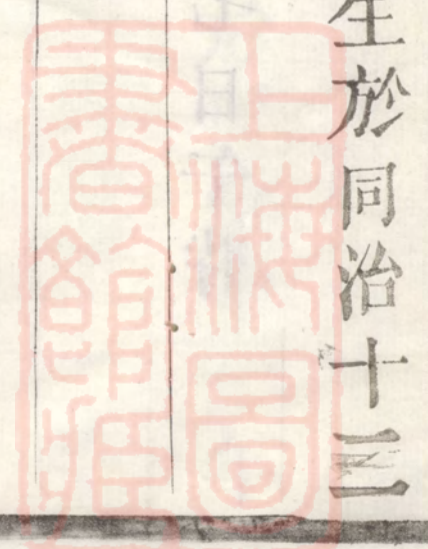 生於同治十三
上海圖
書館